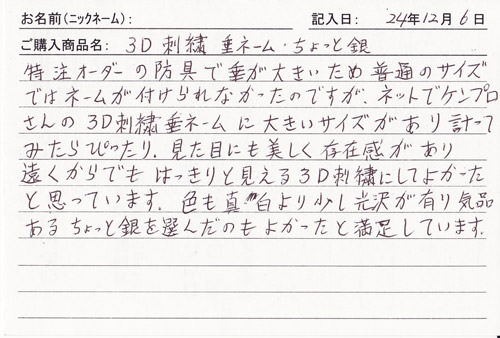 お名前(ニックネーム): 記入日: 24年12月6日
ご購入商品名: 3D刺繍 垂ネーム・ちょっと銀
特注オーダーの防具で垂が大きいため普通のサイズ
ではネームが付けられなかったのですが、ネットでケンプロ
さんの3D刺繍垂ネームに大きいサイズがあり計って
みたらぴったり、見た目にも美しく存在感があり
遠くからでもはっきりと見える3D刺繍にしてよかった
と思っています。色も真白より少し光沢が有り気品
あるちょっと銀を選んだのもよかったと満足しています。